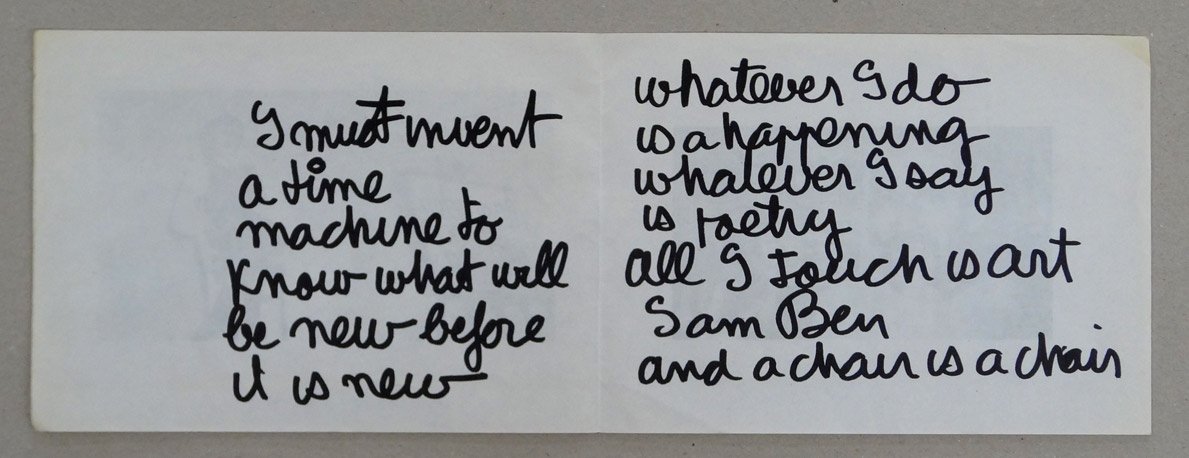 I must invent
a time
machine to
know what will
be new before
it is new
whatever I do
is a happening
whatever I say
is poetry
all I touch is art
Sam Ben
and a chair is a chair